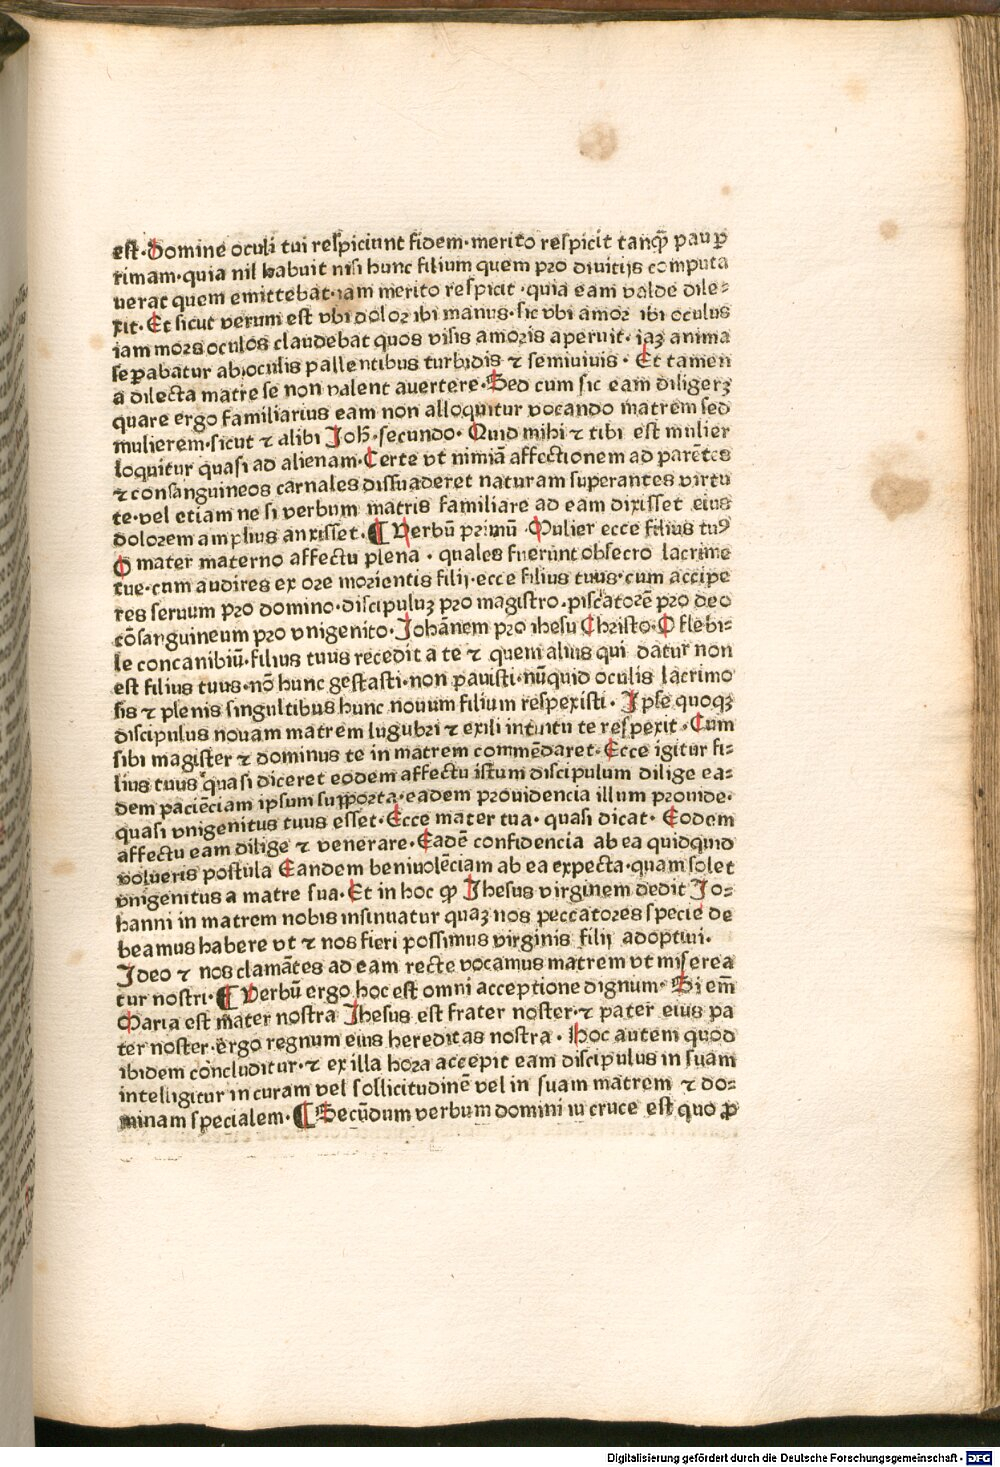 est·Domine oculi tui respiciunt fidem·merito respicit tanq̃ paup
rimam·quia nil habuit nisi hunc filium quem pro diuitijs computa
uerat quem emittebat·iam merito respicit·quia eam valde dile⸗
xit·Et sicut verum est vbi dolor ibi manus·sic vbi amor ibi oculus
iam mors oculos claudebat quos visis amoris aperuit·iaꝫ anima
seꝑabatur ab oculis pallentibus turbidis ⁊ semiuiuis·Et tamen
a dilecta matre se non valent auertere·Sed cum sic eam diligerꝫ
quare ergo familiarius eam non alloquitur vocando matrem sed
mulierem·sicut ⁊ alibi Joh̄·secundo·Quid mihi ⁊ tibi est mulier
loquitur quasi ad alienam·Certe vt nimiā affectionem ad parētes
⁊ consanguineos carnales dissuaderet naturam superantes virtu
te·vel etiam ne si verbum matris familiare ad eam dixisset eius
dolorem amplius anxisset·¶ Verbū primū Mulier ecce filius tuꝰ
O mater materno affectu plena·quales fuerunt obsecro lacrime
tue·cum audires ex ore morientis filij·ecce filius tuus·cum accipe
res seruum pro domino·discipuluꝫ pro magistro·piscatorē pro deo
cōsanguineum pro vnigenito·Johānem pro ihesu Christo·O flebi⸗
le concanibiū·filius tuus recedit a te ⁊ quem alius qui datur non
est filius tuus·nō hunc gestasti·non pauisti·nūquid oculis lacrimo
sis ⁊ plenis singultibus hunc nouum filium respexisti·Ipse quoqꝫ
discipulus nouam matrem lugubri ⁊ exili intuitu te respexit·Cum
sibi magister ⁊ dominus te in matrem commēdaret·Ecce igitur fi⸗
lius tuus quasi diceret eodem affectu istum discipulum dilige ea⸗
dem paciēciam ipsum supporta·eadem prouidencia illum prouide·
quasi vnigenitus tuus esset·Ecce mater tua·quasi dicat·Eodem
affectu eam dilige ⁊ venerare·Eadē confidencia ab ea quidquid
volueris postula Eandem beniuolēciam ab ea expecta·quam solet
vnigenitus a matre sua·Et in hoc ꝙ Jhesus virginem dedit Jo⸗
hanni in matrem nobis insinuatur quaꝫ nos peccatores specie de
beamus habere vt ⁊ nos fieri possimus virginis filij adoptiui·
Ideo ⁊ nos clamātes ad eam recte vocamus matrem vt miserea
tur nostri·¶ Verbū ergo hoc est omni acceptione dignum·Si em̄
Maria est mater nostra Jhesus est frater noster·⁊ pater eius pa
ter noster·ergo regnum eius hereditas nostra·Hoc autem quod
ibidem concluditur·⁊ ex illa hora accepit eam discipulus in suam
intelligitur in curam vel sollicitudinē vel in suam matrem ⁊ do⸗
minam specialem·¶ Secūdum verbum domini in cruce est quo ꝓ
Digitalisierung gefördert durch die Deutsche Forschungsgemeinschaft - DFG